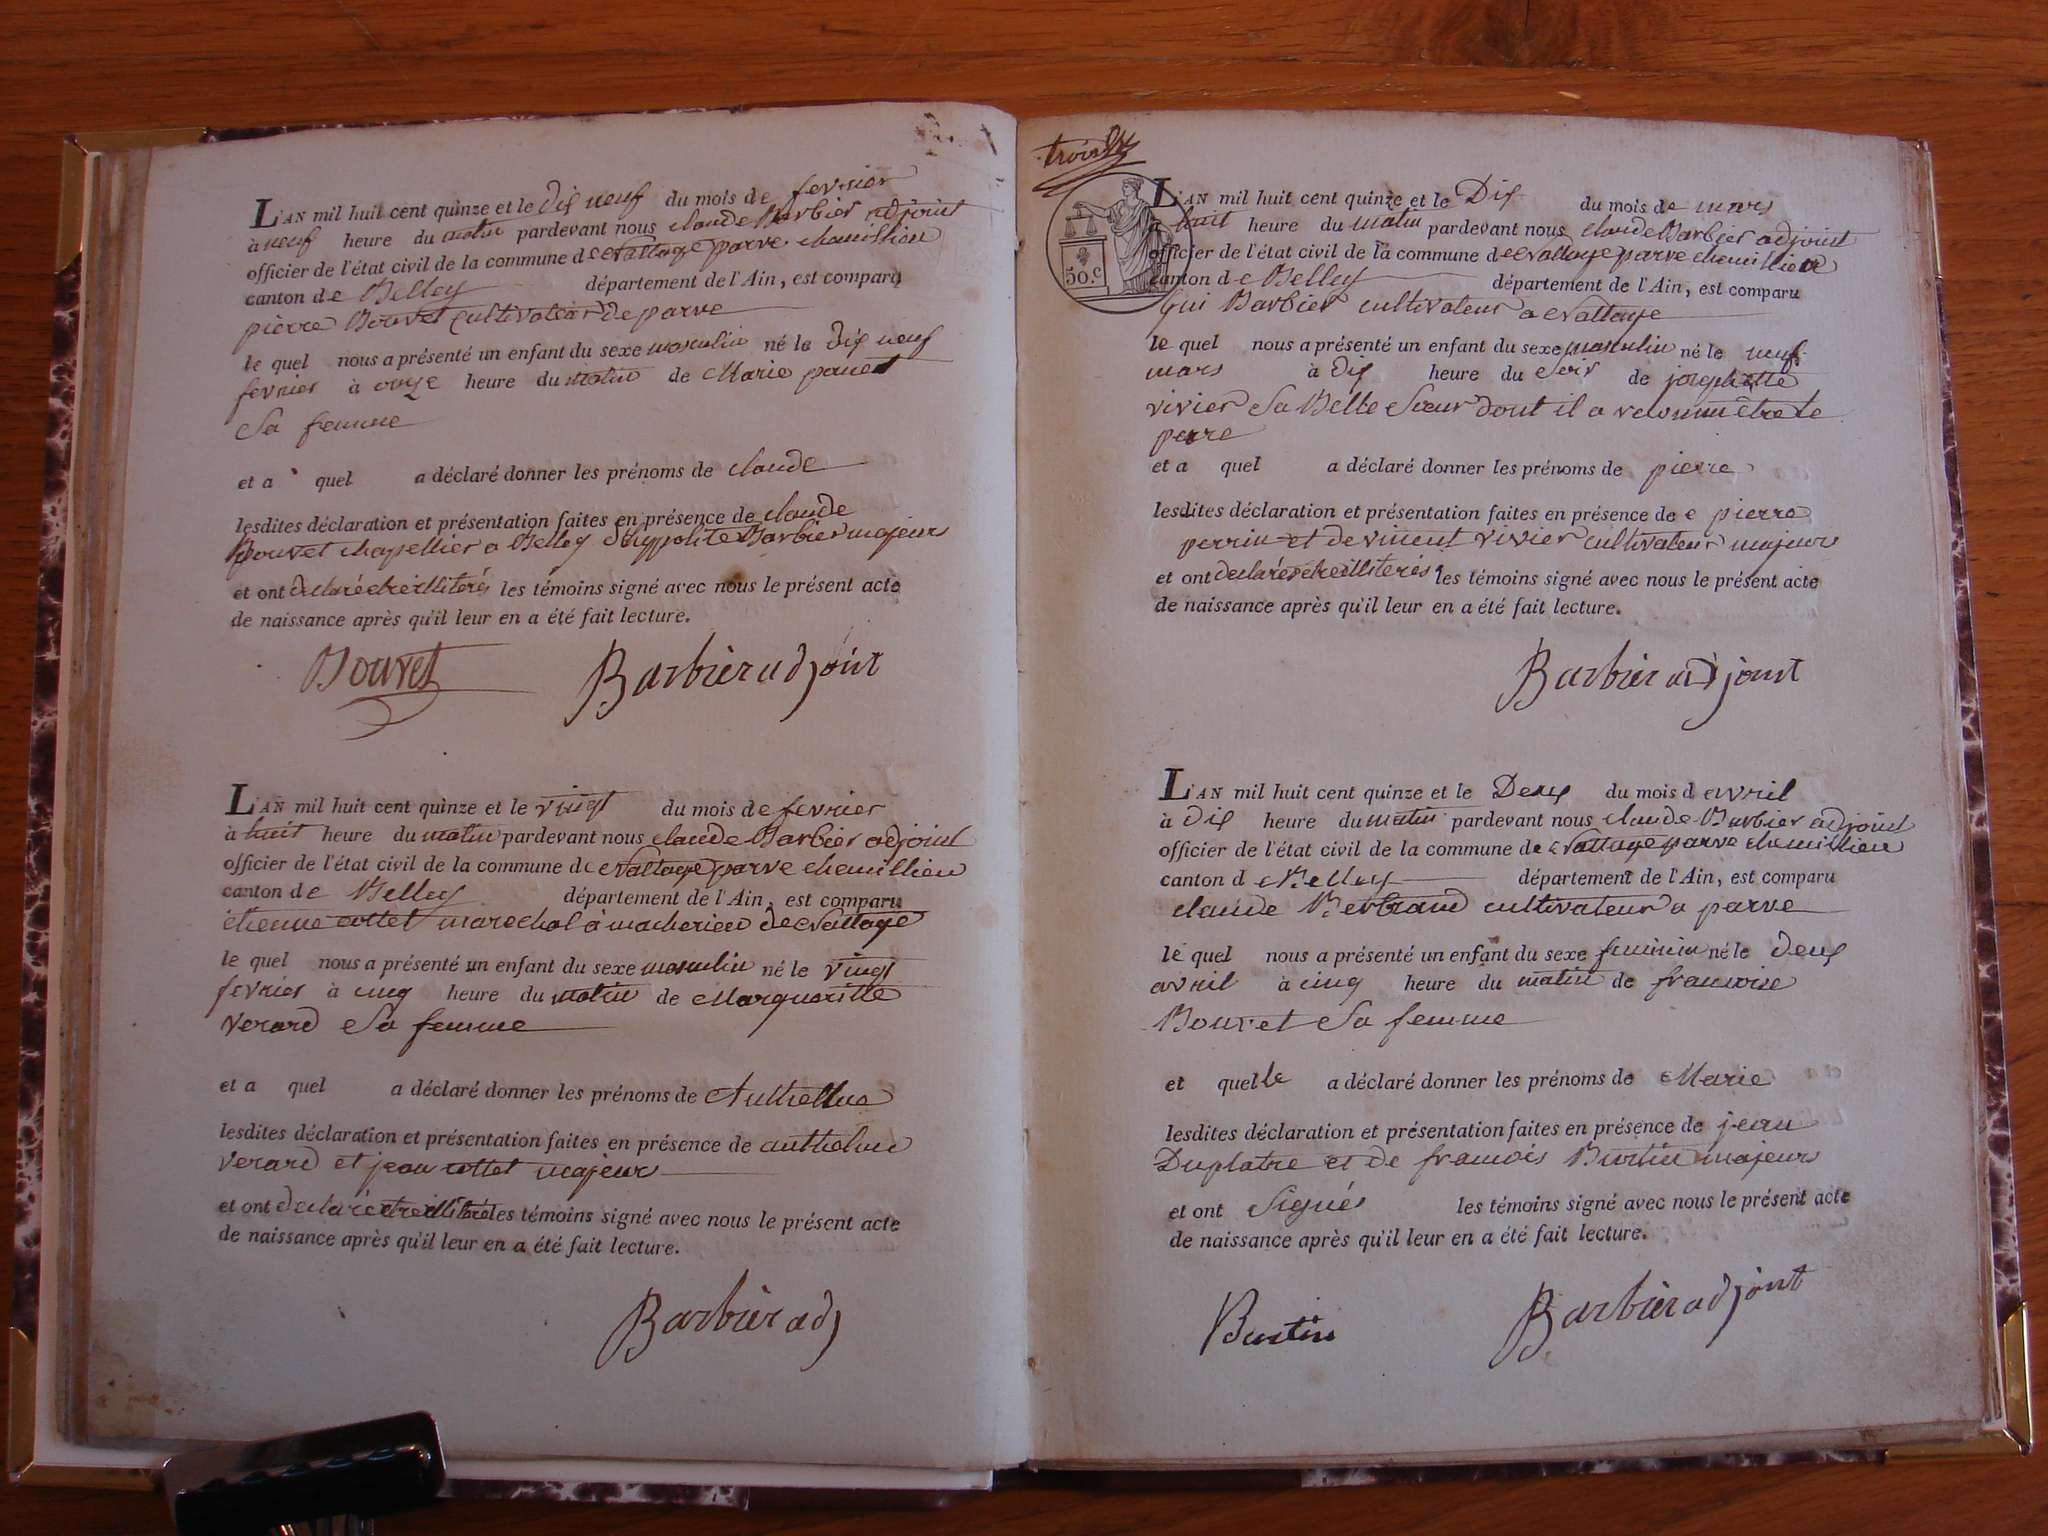 L'AN mil huit cent quinze et le dix neuf du mois de fevrier
à neuf heure du matin pardevant nous claude Barbier adjoint
officier de l'état civil de la commune de Nattage parve chemillieu
canton de Belley département de l'Ain, est comparu
pierre Bouvet cultivateur de parve
le quel nous a présenté un enfant du sexe masculin né le dix neuf
fevrier à onze heure du matin de Marie
Sa femme
et a quel a déclaré donner les prénoms de claude
lesdites déclaration et présentation faites en présence de claude
Bouvet chapellier a Belley d'hyppolite Barbier majeurs
et ont declaré etre illiterés les témoins signé avec nous le présent acte
de naissance après qu'il leur en a été fait lecture.
Bouvet Barbier adjoint
L'AN mil huit cent quinze et le vingt du mois de fevrier
à huit heure du matin pardevant nous claude Barbier adjoint
officier de l'état civil de la commune de Nattage parve chemillieu
canton de Belley département de l'Ain, est comparu
etienne cottet marechal à de Nattage
le quel nous a présenté un enfant du sexe masculin né le vingt
fevrier à cinq heure du matin de Margueritte
verard Sa femme
et a quel a déclaré donner les prénoms de Anthelme
lesdites déclaration et présentation faites en présence de anthelme
verard et jean cottet majeurs
et ont declaré etre illiterés les témoins signé avec nous le présent acte
de naissance après qu'il leur en a été fait lecture.
Barbier adj
trois
50.c
L'AN mil huit cent quinze et le Dix du mois de mars
a huit heure du matin pardevant nous claude Barbier adjoint
officier de l'état civil de la commune de Nattage parve chemillieu
canton de Belley département de l'Ain, est comparu
gui Barbier cultivateur a Nattage
le quel nous a présenté un enfant du sexe masculin né le neuf
mars à dix heure du Soir de josephette
vivier Sa Belle Sœur dont il a reconnu être le
perre
et a quel a déclaré donner les prénoms de pierre
lesdites déclaration et présentation faites en présence de pierre
perrin et de vincent vivier cultivateur majeurs
et ont declarés etre illiterés les témoins signé avec nous le présent acte
de naissance après qu'il leur en a été fait lecture.
Barbier adjoint
L'AN mil huit cent quinze et le Deux du mois d avril
à dix heure du matin pardevant nous claude Barbier adjoint
officier de l'état civil de la commune de Nattage parve chemillieu
canton d Belley département de l'Ain, est comparu
claude Bertrand cultivateur a parve
le quel nous a présenté un enfant du sexe feminin né le deux
avril à cinq heure du matin de francoise
Bouvet Sa femme
et quelle a déclaré donner les prénoms de Marie
lesdites déclaration et présentation faites en présence de jean
Duplatre et de francois Burtin majeurs
et ont Signés les témoins signé avec nous le présent acte
de naissance après qu'il leur en a été fait lecture.
Burtin Barbier adjoint